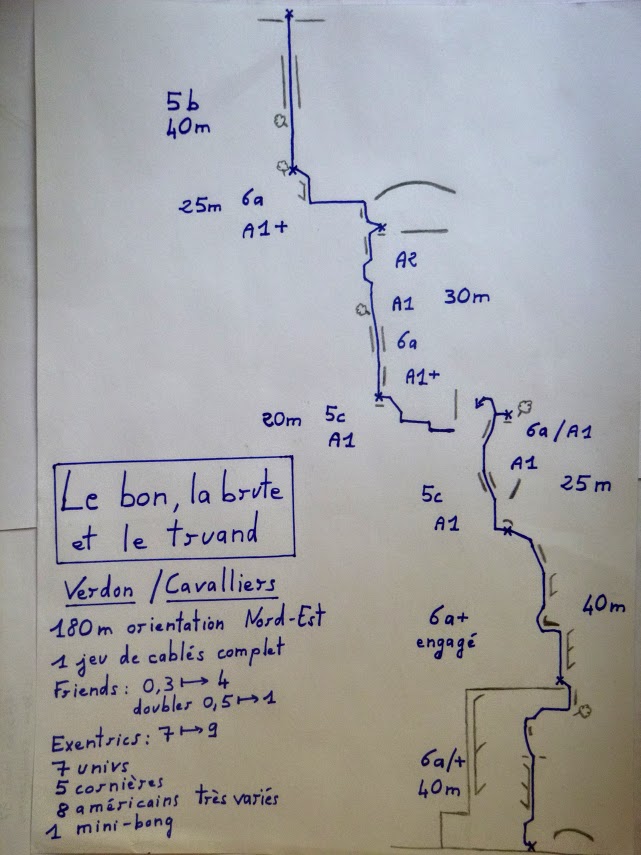 5b
40m
25m 6a
A1+
A2
A1 30m
6a
A1+
20m 5c
A1
6a/A1
A1
25m
5c
A1
40m
6a+
engagé
6a/+
40m
Le bon, la brute
et le truand
Verdon / Cavalliers
180m orientation Nord-Est
1 jeu de cablés complet
Friends: 0,3 ↦ 4
doubles 0,5 ↦ 1
Exentrics: 7 ↦ 9
7 univs
5 cornières
8 américains très variés
1 mini-bong